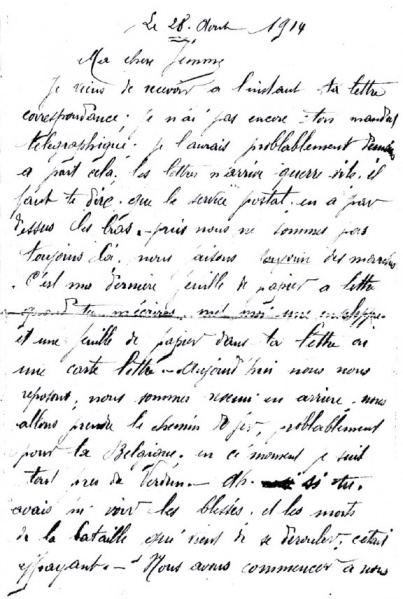 Le 28 Aout 1914
Ma chere femme
Je viens de recevoir a l'instant ta lettre
correspondance. je n'ai pas encore ton mandat
telegraphique. je l'aurais problablement demain
a part cela. les lettres n'arrive guerre vite. il
faut te dire. que le service postal. en a par
dessus les bras. puis nous ne sommes pas
toujours là. nous avons des marches
C'est ma derniere feuille de papier a lettre
quand tu m'écriras, met moi une enveloppe
et une feuille de papier dans ta lettre ou
une carte lettre - Aujourd'hui nous nous
reposont, nous sommes revenu en arriere. nous
allons prendre le chemin de fer, problablement
pour la Belgique. en ce moment je suis
tout pres de Verdun. - Ah. si tu.
avais vu les blessés. et les morts
de la bataille qui vient de se derouler, c'etait
effrayant. - Nous avons commencer a nous